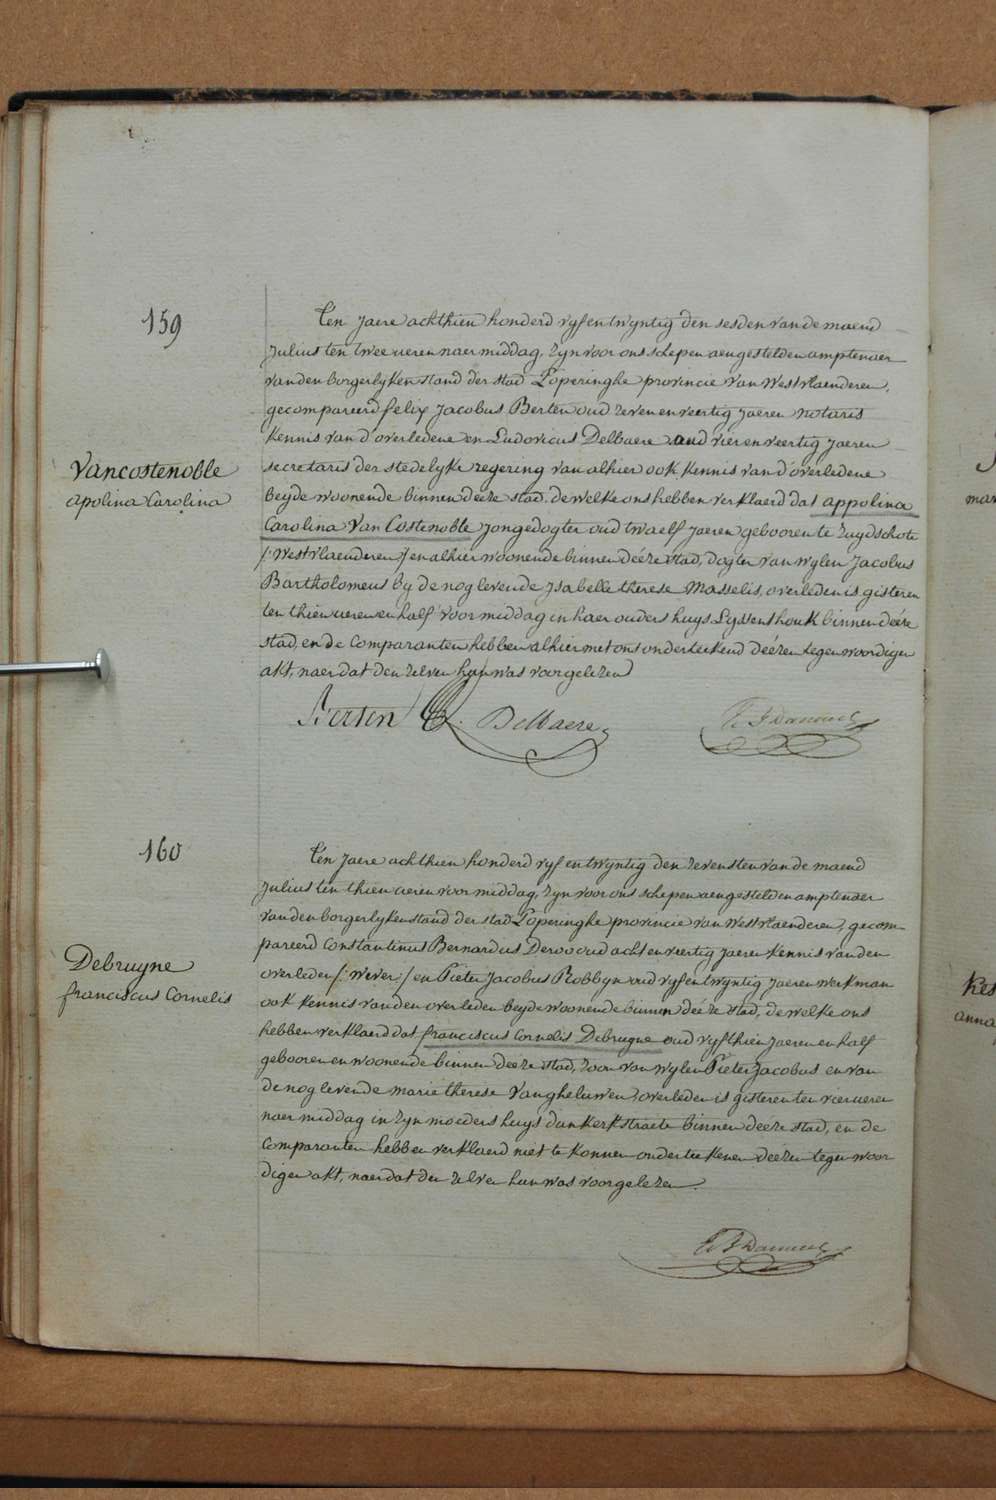 159
Ten Jaere achthien honderd vyf en twyntig den sesden van de maend
Julius ten twee ueren naer middag, zyn voor ons schepen aengestelden amptenaer
van den borgerlyken stand der stad Poperinghe provincie van Westvlaenderen,
gecompareerd felix Jacobus Berten oud zeven en veertig Jaeren notaris
Kennis van d'overledene en Ludovicus Delbaere oud vier en veertig Jaeren
Vancostenoble
apolina Carolina
secretaris der stedelyke regering van alhier ook Kennis van d'overledene
beyde woonende binnen deéze stad, de welke ons hebben verklaerd dat appolina
Carolina Van Costenoble Jongedogter oud twaelf Jaeren gebooren te Zuydschote
/:Westvlaenderen:/ en alhier woonende binnen deéze stad, dogter van wylen Jacobus
Bartholomeus by de nog levende Isabelle therese Masselis, overleden is gisteren
ten thien ueren en half voor middag in haer ouders huys Lyssenthouk binnen deéze
stad, en de Comparanten hebben alhier met ons onderteekend deézen tegenwoordigen
akt, naer dat den zelven hun was voorgelezen
Berten L. Delbaere
160
Ten Jaere achthien honderd vyf en twyntig den zevensten van de maend
Julius ten thien ueren voor middag, zyn voor ons schepen aengestelden amptenaer
van den borgerlyken stand der stad Poperinghe provincie van Westvlaenderen, gecom-
pareerd Constantinus Bernardus Deroo oud acht en veertig Jaeren Kennis van den
Debruyne
franciscus Cornelis
overleden /: Wever:/ en Pieter Jacobus Robbyn oud vyf en twyntig Jaeren werkman
ook Kennis van den overleden beyde woonende binnen deéze stad, de welke ons
hebben verklaerd dat franciscus Cornelis Debruyne oud vyfthien Jaeren en half
gebooren en woonende binnen deeze stad, zoon van wylen Pieter Jacobus en van
de nog levende marie therese Vangheluwen, overleden is gisteren ten vier ueren
naer middag in zyn moeders huys dunkerkstraete binnen deéze stad, en de
Comparanten hebben verklaerd niet te konnen onderteekenen deézen tegenwoor
digen akt, naer dat den zelven hun was voorgelezen.